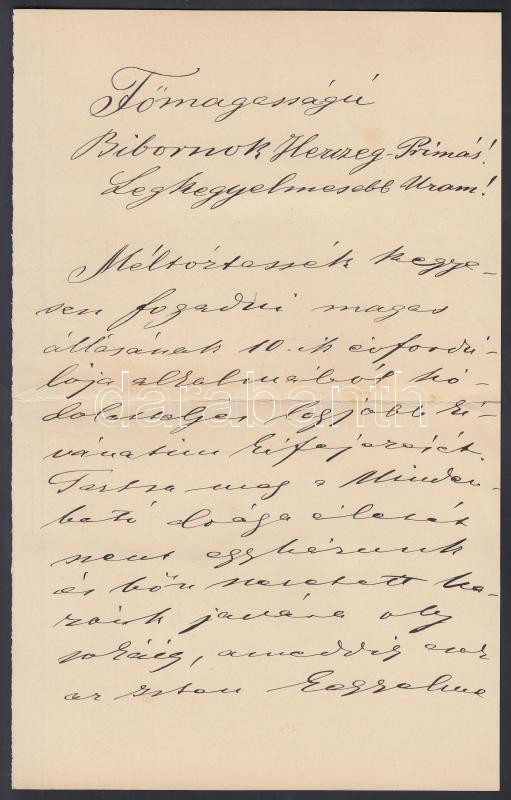 Főmagasságú
Bibornok Herczeg-Primás!
Legkegyelmesebb Uram!
Méltóztassék kegye-
sen fogadni magas
állásának 10.-ik évfordú-
lója alkalmából hó-
dolatteljes legjobb ki-
vánatim kifejezését.
Tartsa meg a Minden-
ható drága életét
szent egyházunk
és hőn szeretett ha-
zánk javára oly
sokáig, ameddig csak
az Isten kegyelme
darabanth